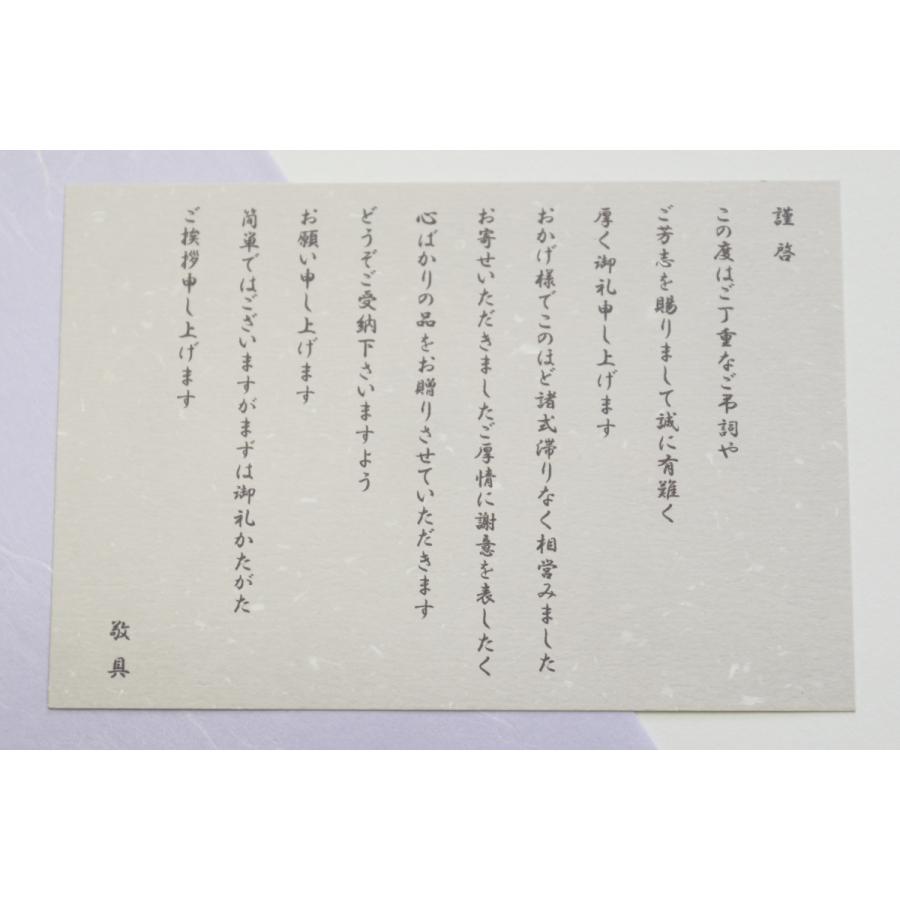 謹啓
この度はご丁重なご弔詞や
ご芳志を賜りまして誠に有難く
厚く御礼申し上げます
おかげ様でこのほど諸式滞りなく相営みました
お寄せいただきましたご厚情に謝意を表したく
心ばかりの品をお贈りさせていただきます
どうぞご受納下さいますよう
お願い申し上げます
簡単ではございますがまずは御礼かたがた
ご挨拶申し上げます
敬具